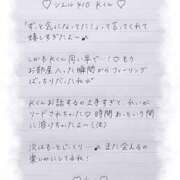 ♡ ソムリエ410 Kくん ♡
「ずっと気になってた!」って言ってくれて
嬉しすぎたよ〜♪
しかもKくん同い年で…!○もう
お部屋入った瞬間からフィーリング
ばっちりだったね♡
Kくんお話するの上手すぎて、れいが
リードされちゃった○時間あっという間
に溶けちゃたよ〜(笑)
次はもっとじっくり…♥また会える日
楽しみにしてるね!